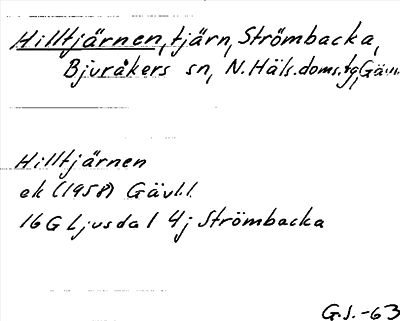 Hilltjärnen, tjärn, Strömbacka,
Bjuråkers sn, N. Häls. doms. tg, Gävl.
Hilltjärnen
ek (1958) Gävl.l.
16G Ljusdal 4j Strömbacka
G.S. -63